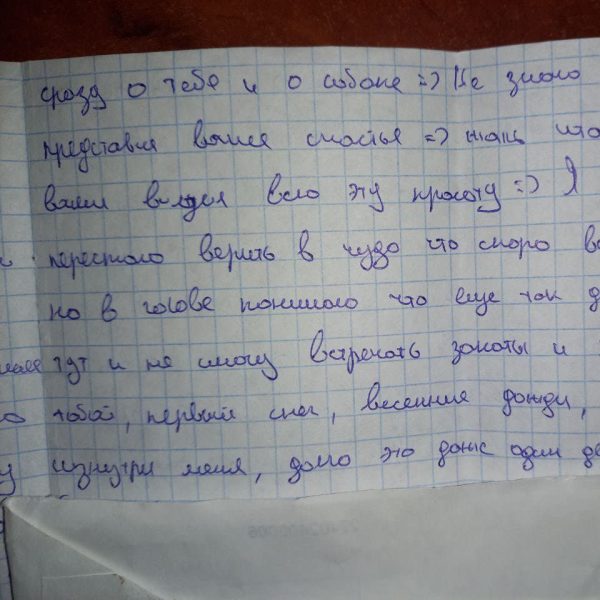 сразу о тебе и о собаке =) Не знаю
представил ваше счастье =) жаль что
вами видел всю эту красоту =) Я
перестаю верить в чудо что скоро
но в голове понимаю что еще так
тут и не смогу встречать закаты и
тобой, первый снег, весенние дожди,
изнутри меня, долго это даже один